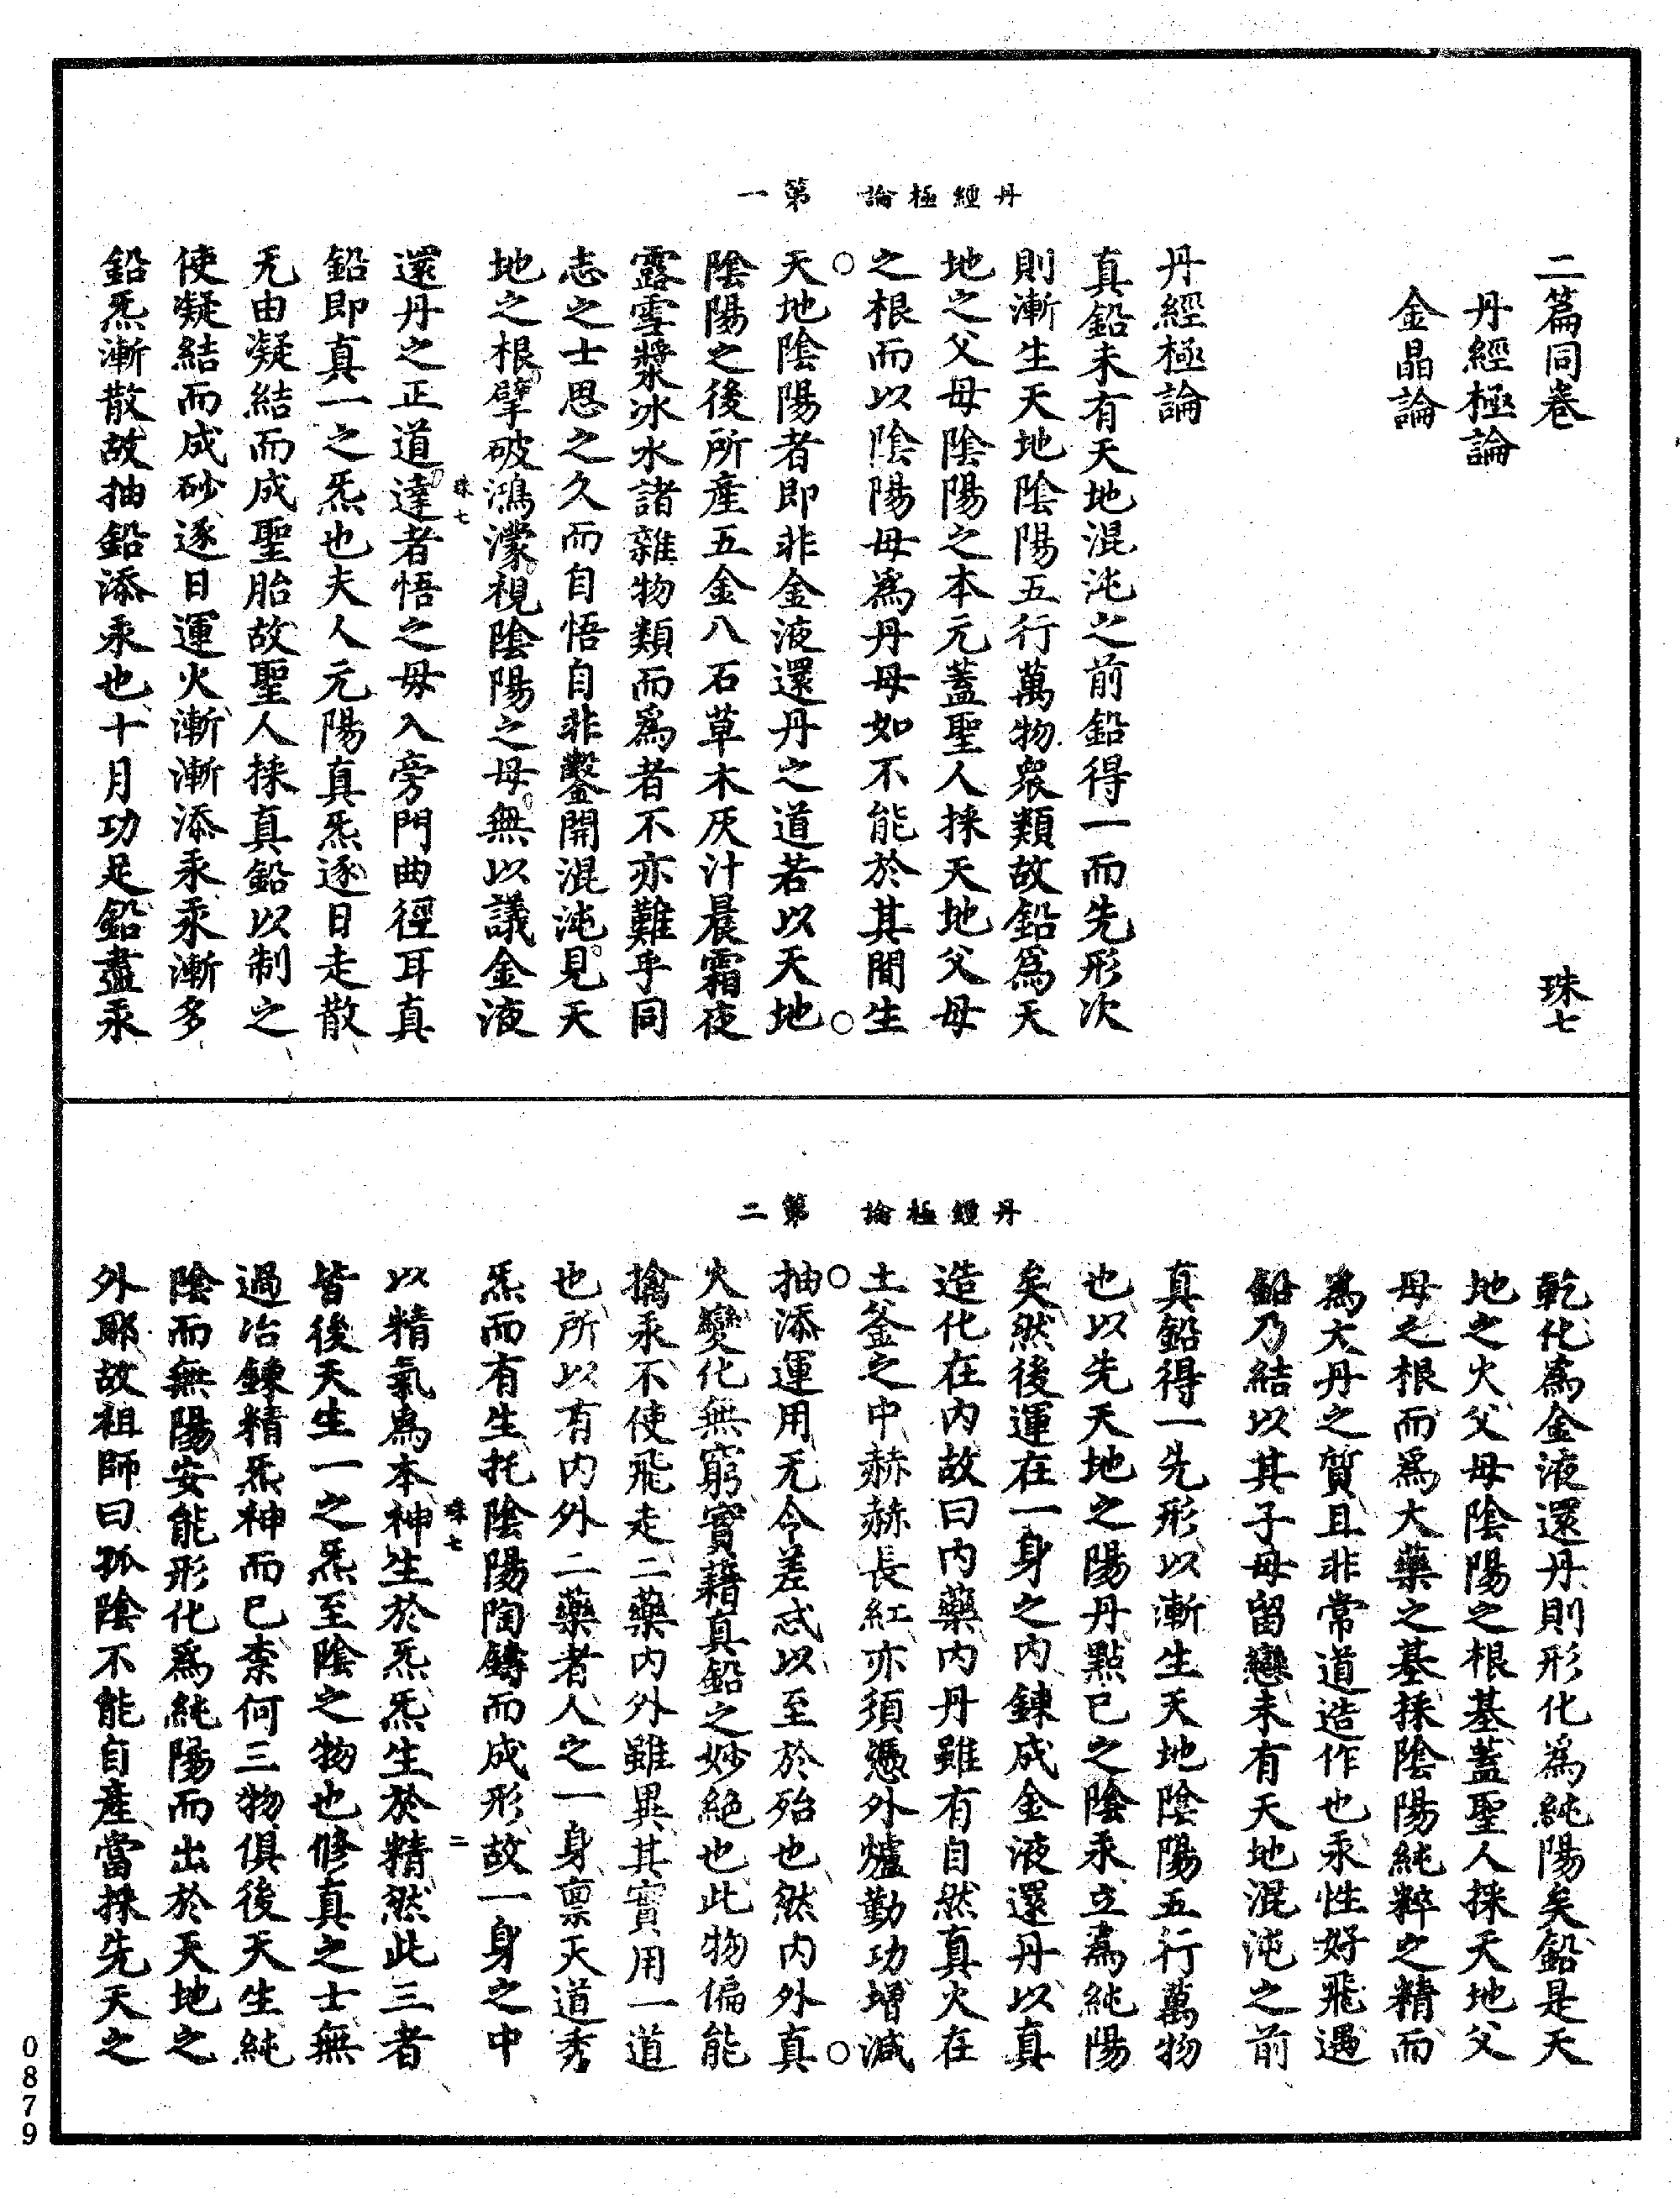 丹經極論　第一
二篇同卷　珠七
丹經極論
金晶論
丹經極論
真鉛未有天地混沌之前鉛得一而先形次
則漸生天地陰陽五行萬物衆類故鉛爲天
地之父母陰陽之本元蓋聖人採天地父母
之根而以陰陽母爲丹母如不能於其間生
天地陰陽者即非金液還丹之道若以天地
陰陽之後所産五金八石草木灰汁晨霜夜
露雪漿冰水諸雜物類而爲者不亦難乎同
志之士思之久而自悟自非鑿開混沌見天
地之根擘破鴻濛視陰陽之母無以議金液
珠七
還丹之正道達者悟之毋入旁門曲徑耳真
鉛即真一之炁也夫人元陽真炁逐日走散
无由凝結而成聖胎故聖人採真鉛以制之
使凝結而成砂逐日運火漸漸添汞汞漸多
鉛炁漸散故抽鉛添汞也十月功足鉛盡汞
丹經極論　第二
乾化爲金液還丹則形化爲純陽矣鉛是天
地之火父母陰陽之根基蓋聖人採天地父
母之根而爲大藥之基採陰陽純粹之精而
爲大丹之質且非常道造作也汞性好飛遇
鉛乃結以其子母留戀未有天地混沌之前
真鉛得一先形以漸生天地陰陽五行萬物
也以先天地之陽丹點已之陰汞立爲純陽
矣然後運在一身之內鍊成金液還丹以真
造化在內故曰內藥內丹雖有自然真火在
土釜之中赫赫長紅亦須憑外爐勤功增減
抽添運用无令差忒以至於殆也然內外真
火變化無窮實藉真鉛之妙絶也此物偏能
擒汞不使飛走二藥內外雖異其實用一道
也所以有內外二藥者人之一身稟天道秀
炁而有生托陰陽陶鑄而成形故一身之中
珠七　二
以精氣爲本神生於炁炁生於精然此三者
皆後天生一之炁至陰之物也修真之士無
過冶鍊精炁神而已柰何三物俱後天生純
陰而無陽安能形化爲純陽而出於天地之
外耶故祖師曰孤陰不能自產當採先天之
0879